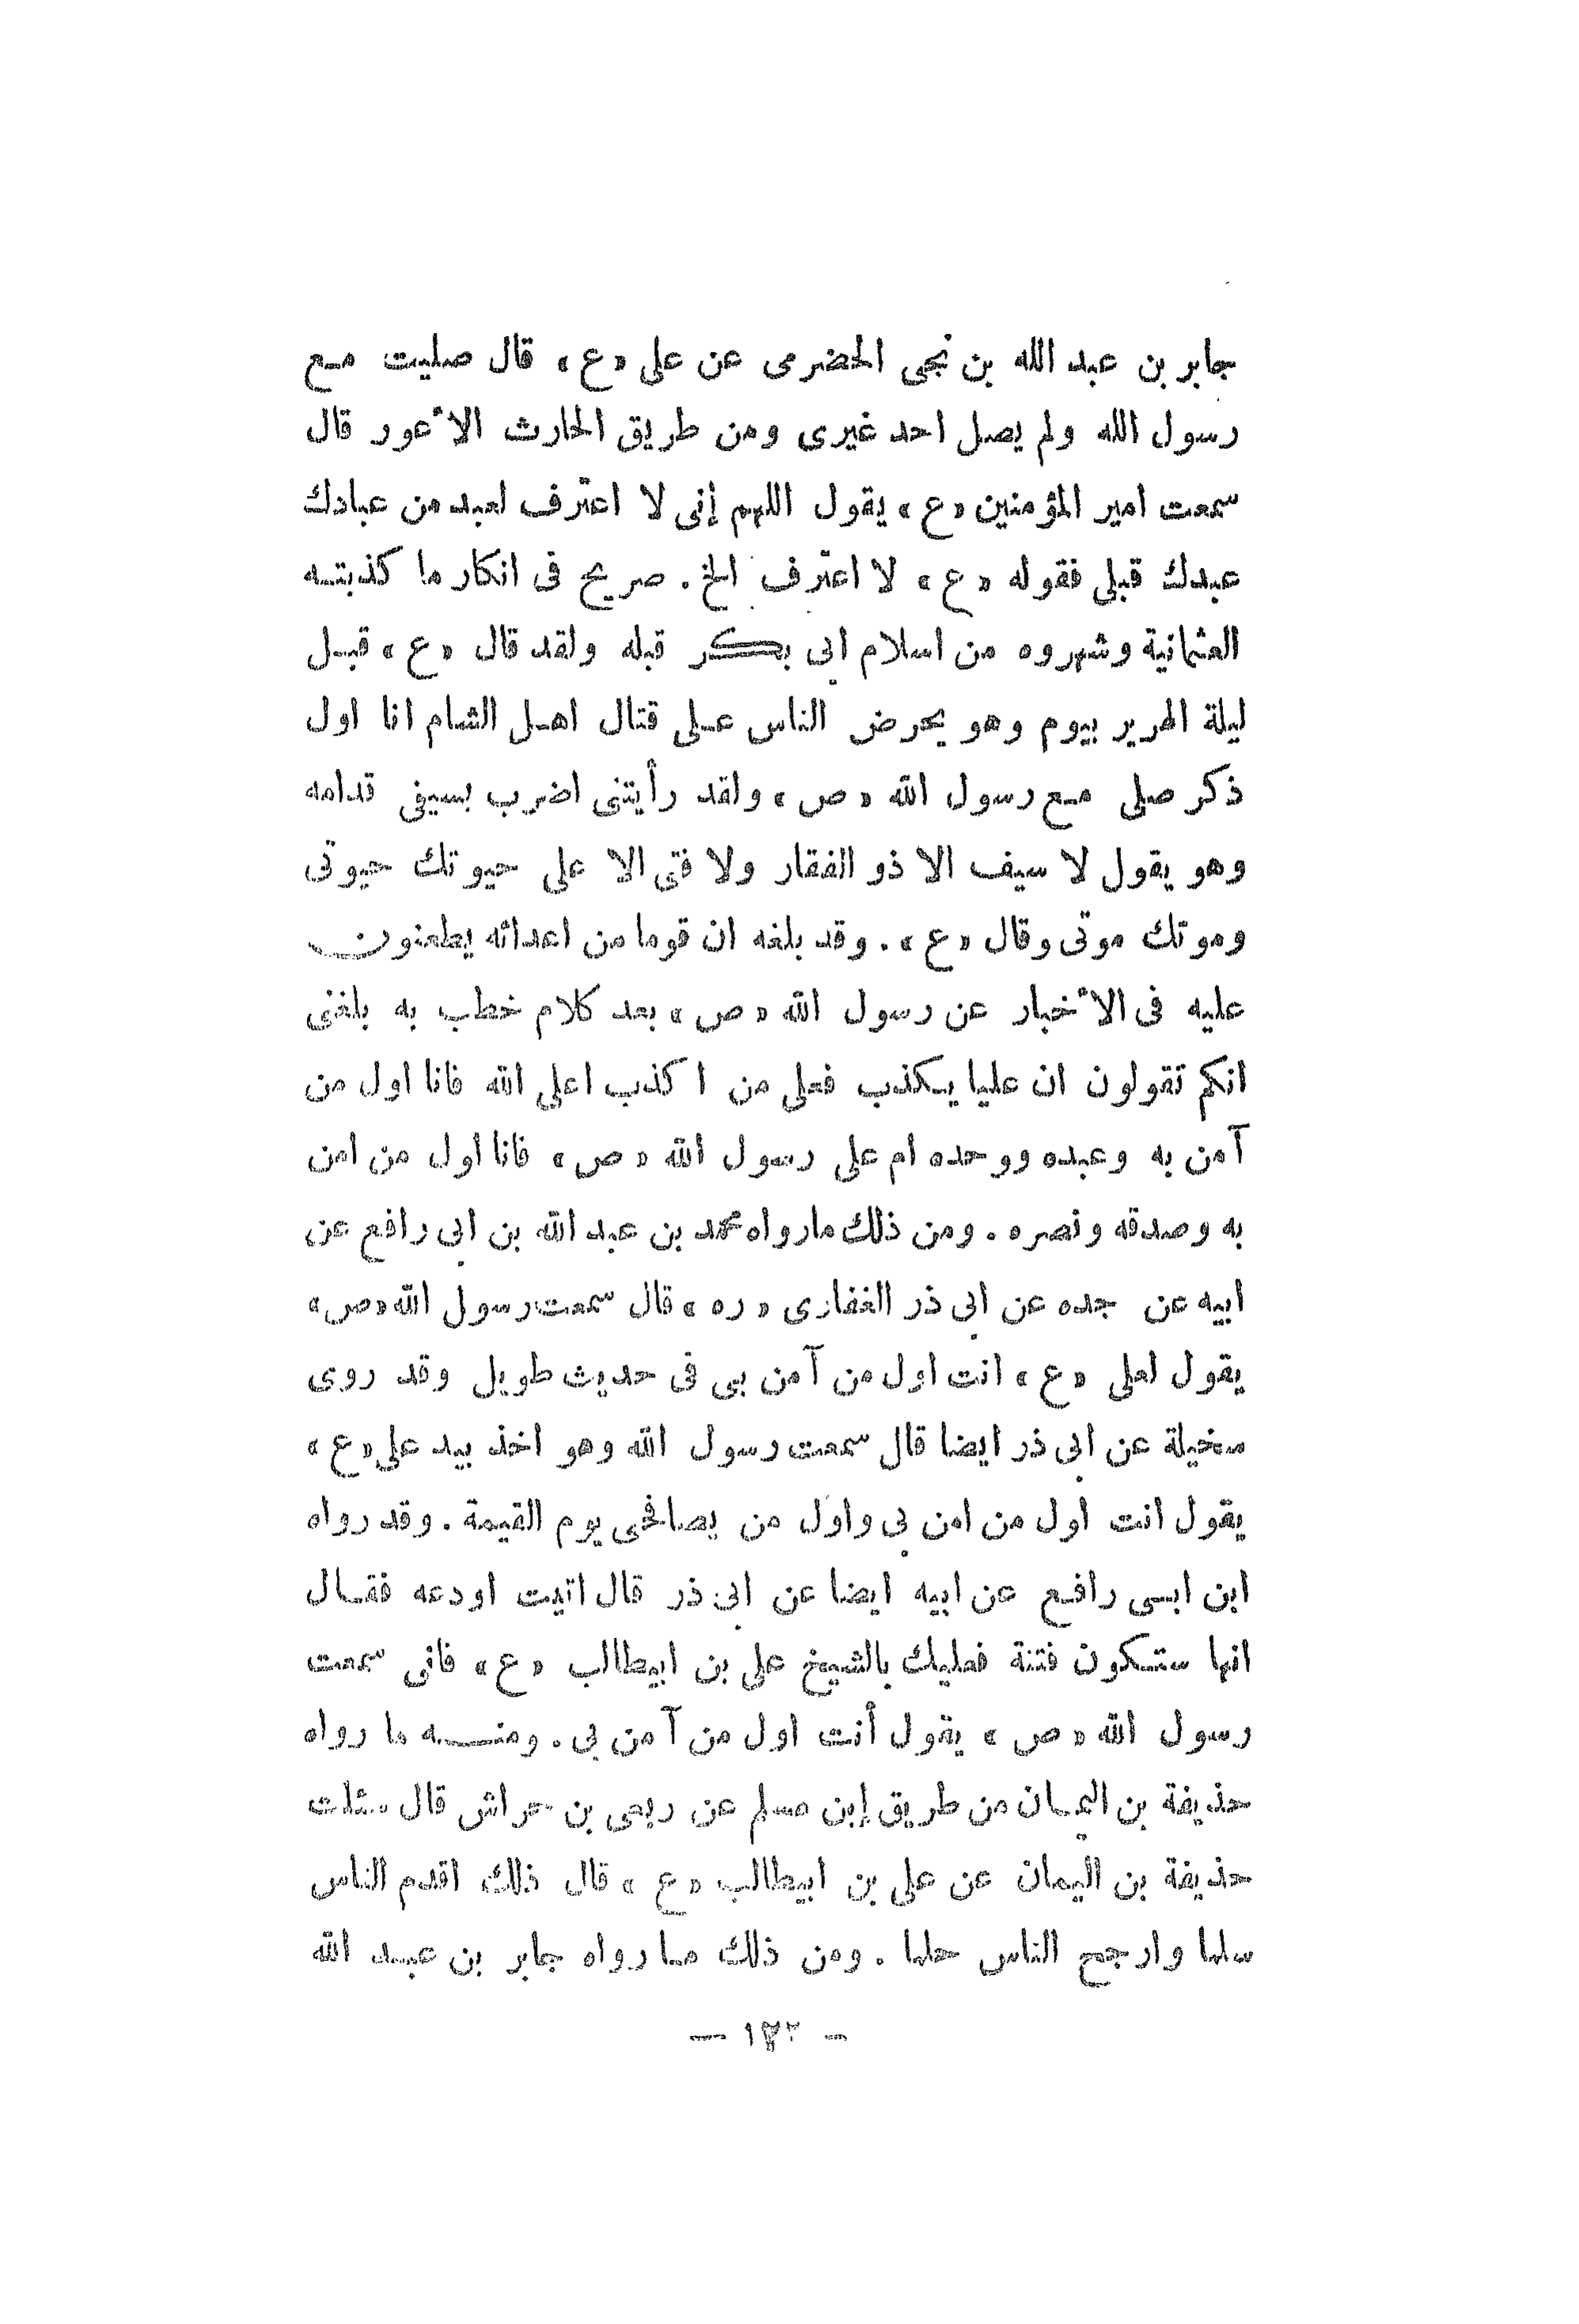 جابر بن عبد الله بن نجى الحضرمى عن على «ع» قال صليت مع
رسول الله ولم يصل احد غيرى ومن طريق الحارث الأعور قال
سمعت امير المؤمنين «ع» يقول اللهم إنى لا اعترف لعبد من عبادك
عبدك قبلى فقوله «ع» لا اعترف الخ . صريح فى انكار ما كذبته
العثمانية وشهروه من اسلام ابى بكر قبله ولقد قال «ع» قبل
ليلة الهرير بيوم وهو يحرض الناس على قتال اهل الشام انا اول
ذكر صلى مع رسول الله «ص» ولقد رأيتنى اضرب بسيفى قدامه
وهو يقول لا سيف الا ذو الفقار ولا فتى الا على حيوتك حيوتى
وموتك موتى وقال «ع» . وقد بلغه ان قوما من اعدائه يطعنون
عليه فى الأخبار عن رسول الله «ص» بعد كلام خطب به بلغنى
انكم تقولون ان عليا يكذب فعلى من اكذب اعلى الله فانا اول من
آمن به وعبده ووحده ام على رسول الله «ص» فانا اول من امن
به وصدقه ونصره . ومن ذلك مارواه محمد بن عبد الله بن ابى رافع عن
ابيه عن جده عن ابى ذر الغفارى «ره» قال سمعت رسول الله «ص»
يقول لعلى «ع» انت اول من آمن بى فى حديث طويل وقد روى
سخيلة عن ابى ذر ايضا قال سمعت رسول الله وهو اخذ بيد على «ع»
يقول انت اول من امن بى واول من يصافحى يوم القيمة . وقد رواه
ابن ابى رافع عن ابيه ايضا عن ابى ذر قال اتيت اودعه فقال
انها ستكون فتنة فعليك بالشيخ على بن ابيطالب «ع» فانى سمعت
رسول الله «ص» يقول أنت اول من آمن بى . ومنه ما رواه
حذيفة بن اليمان من طريق إبن مسلم عن ربعى بن حراش قال سئلت
حذيفة بن اليمان عن على بن ابيطالب «ع» قال ذلك اقدم الناس
سلما وارجح الناس حلما . ومن ذلك ما رواه جابر بن عبد الله